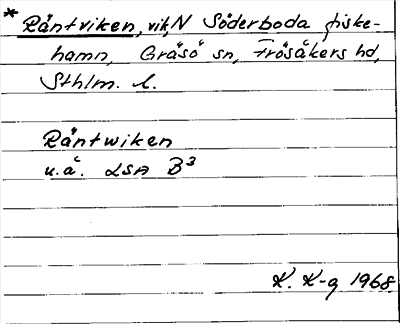 * Råntviken, vik, N Söderboda fiske-
hamn, Gräsö sn, Frösåkers hd,
Sthlm. l.
Råntwiken
u.å. LSA B3
K. K-g 1968.